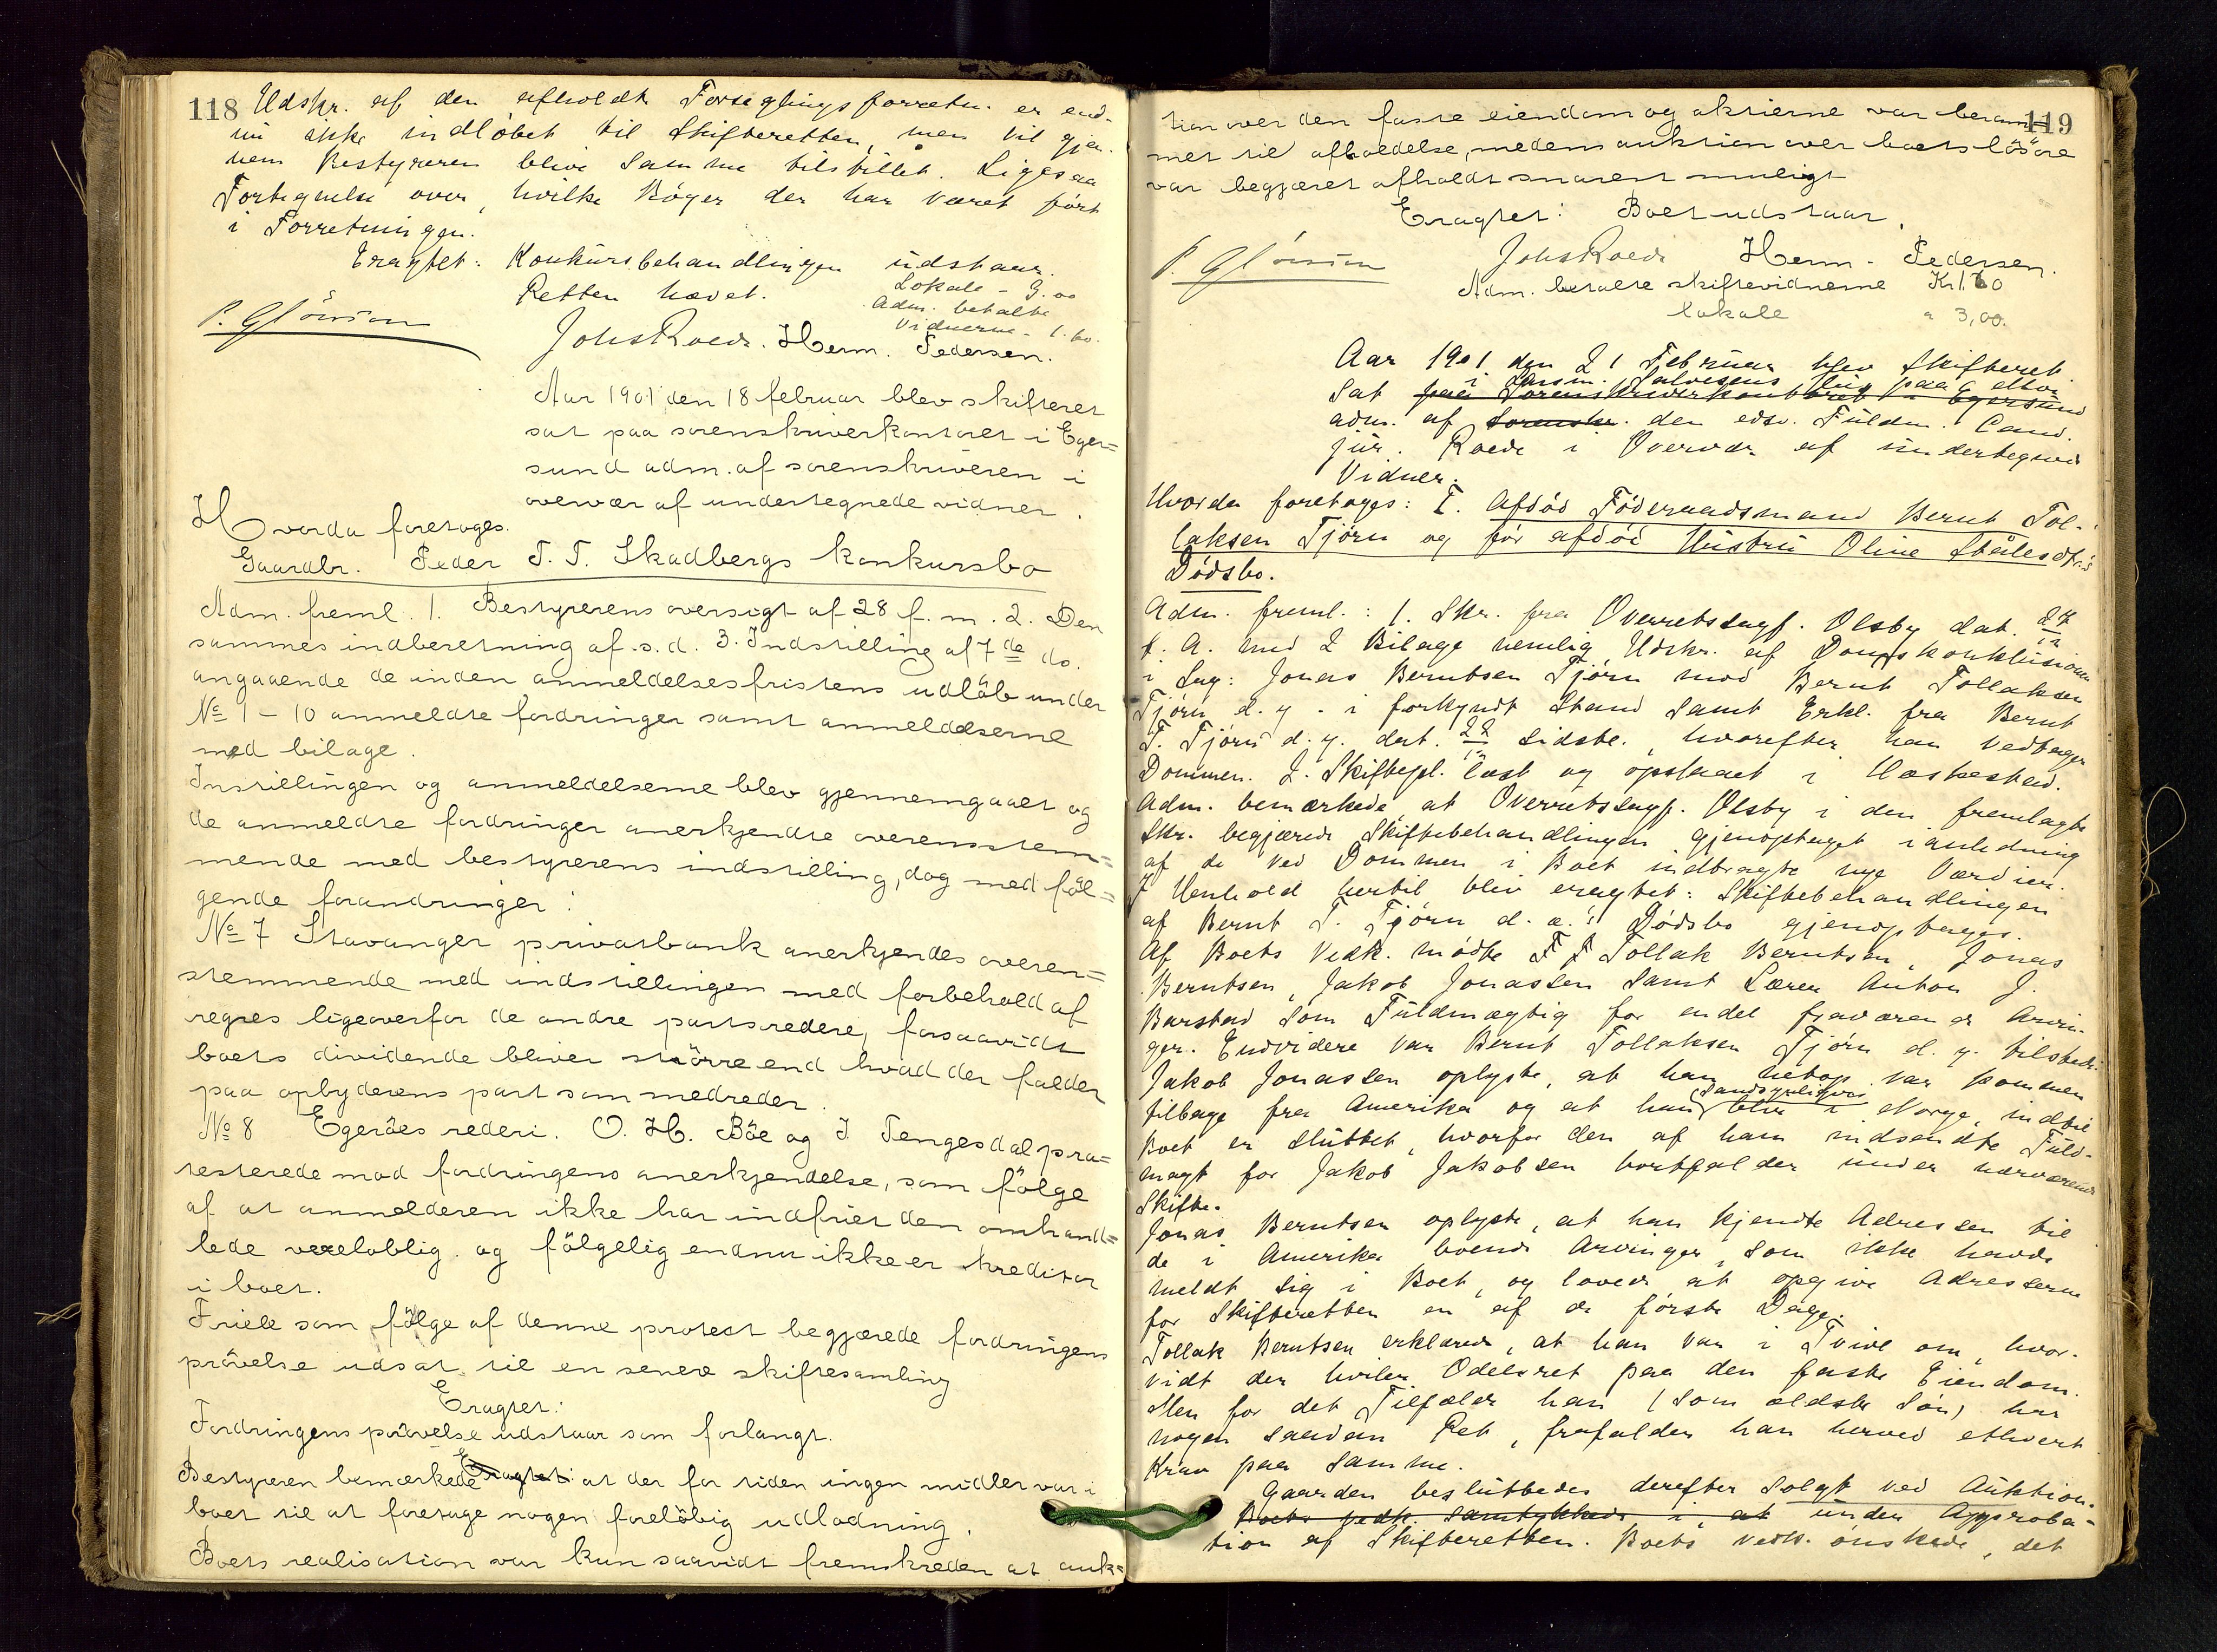 118 Udskr. af den afholdte Forseglingsforretn. er end-
nu ikke indløbet til Skifteretten, men vil gjen-
nem Bestyreren blive samme tilstillet. Ligesaa
Fortegnelse over, hvilke Bøger der har været ført
i Forretningen.
Eragtet: Konkursbehandlingen udstaar.
Retten hævet.
Lokale - 3.00
Adm. betalte
Vidnerne - 1.60.
P. Glörsen
Johs Roede. Herm. Pedersen.
Aar 1901 den 18 februar blev skifteret
sat paa sorenskriverkontoret i Eger=
sund adm. af sorenskriveren i
overvær af undertegnede vidner.
Hvorda foretoges.
Gaardbr. Peder T. T. Skadbergs konkursbo
Adm. freml. 1. Bestyrerens oversigt af 28 f. m. 2. Den
sammes indberetning af s. d. 3. Indstilling af 7de ds.
angaaende de inden anmeldelsesfristens udløb under
No 1 - 10 anmeldte fordringer samt anmeldelserne
med bilage.
Instillingen og anmeldelserne blev gjennemgaaet og
de anmeldte fordringer anerkjendte overensstem=
mende med bestyrerens indstilling, dog med føl=
gende forandringer:
No 7 Stavanger privatbank anerkjendes overen=
stemmende med indstillingen med forbehold af
regres ligeoverfor de andre partsredere, forsaavidt
boets dividende bliver større end hvad der falder
paa opbyderens part som medreder.
No 8 Egerøes rederi. O. H. Bøe og J. Tengesdal pro=
testerede mod fordringens anerkjendelse, som følge
af at anmelderen ikke har indfriet den omhand=
lede vexeloblig. og følgelig endnu ikke er kreditor
i boet.
Friele som følge af denne protest begjærede fordringens
prøvelse udsat til en senere skiftesamling
Eragtet:
Fordringens prøvelse udstaar som forlangt.
Bestyreren bemærkede Eragtet: at der for tiden ingen midler var i
boet til at foretage nogen foreløbig udlodning.
Boets realisation var kun saavidt fremskreden at auk=
119
tion over den faste eiendom og aktierne var beram=
met til afholdelse, medens auktion over boets løsøre
var begjæret afholdt snarest muligt
Eragtet: Boet udstaar.
P. Glörsen Johs Roede Herm. Pedersen.
Adm. betalte skiftevidnerne Kr 1.60
lokale " 3,00.
Aar 1901 den 21 Februar blev Skifteret
i Lensm. Salvesens Hus paa
sat paa Sorenskriverkontoret i Egersund
adm. af Sorenskr. den edsv. Fuldm. Cand.
jur. Roede i Overvær af undertegnede
Vidner.
Hvorda foretoges: I. Afdød Føderaadsmand Bernt Tol-
laksen Tjørn og før afdød Hustru Oline Ståtlesdtr.s
Dødsbo.
Adm. freml.: 1. Skr. fra Overretssagf. Olsby dat. 27/12
f. A. med 2 Bilage nemlig Udskr. af Domskonklusionen
i Sag: Jonas Berntsen Tjørn mod Bernt Tollaksen
Tjørn d. y. i forkyndt Stand samt Erkl. fra Bernt
T. Tjørn d. y. dat. 22/12 sidste, hvorefter han vedtager
Dommen. 2. Skiftepl. læst og opslaaet i Heskestad.
Adm. bemærkede, at Overretssagf. Olsby i den fremlagte
Skr. begjærede Skiftebehandlingen gjenoptaget i anledning
af de ved Dommen i Boet indbragte nye Værdier.
I Henhold hertil blev eragtet: Skiftebehandlingen
af Bernt T. Tjørn d. æ.s Dødsbo gjenoptages.
Af Boets Vedk. mødte Tollak Berntsen, Jonas
Berntsen, Jakob Jonassen samt Lærer Anton J.
Barstad som Fuldmægtig for endel fraværende Arvin-
ger. Endvidere var Bernt Tollaksen Tjørn d. y. tilstede.
Jakob Jonassen oplyste, at han netop var kommen
sandsynligvis
tilbage fra Amerika og at han bliver i Norge, indtil
Boet er sluttet, hvorfor den af ham indsendte Fuld-
magt for Jakob Jakobsen bortfalder under nærværende
Skifte.
Jonas Berntsen oplyste, at han kjendte Adressen til
de i Amerika boende Arvinger, som ikke havde
meldt sig i Boet, og lovede at opgive Adresserne
for Skifteretten en af de første Dage.
Tollak Berntsen erklærede, at han var i Tvivl om, hvor-
vidt der hviler Odelsret paa den faste Eiendom.
Men for det Tilfælde han (som ældste Søn) har
nogen saadan Ret, frafalder han herved ethvert
Krav paa samme.
Gaarden besluttedes derefter solgt ved Auktion.
Boets vedk. samtykkede i, at under Approba-
tion af Skifteretten. Boets vedk. ønskede, det